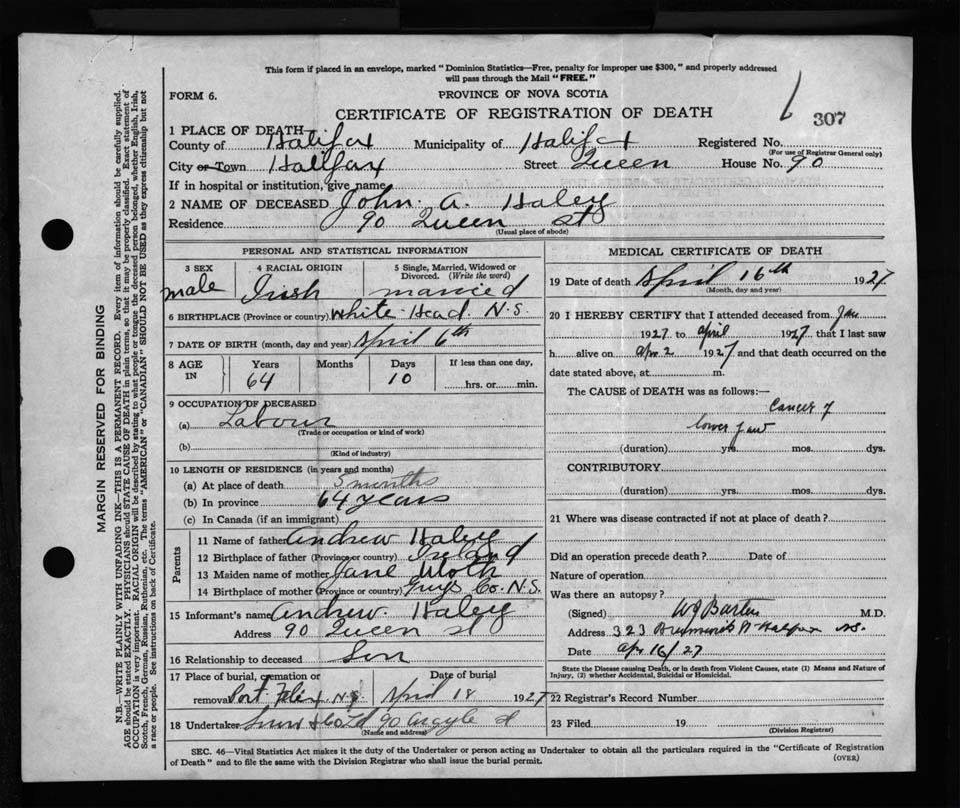 This form if placed in an envelope, marked "Dominion Statistics—Free, penalty for improper use $300," and properly addressed
will pass through the Mail "FREE."
FORM 6.
PROVINCE OF NOVA SCOTIA
CERTIFICATE OF REGISTRATION OF DEATH
307
1 PLACE OF DEATH—
County of Halifax Municipality of Halifax Registered No.
(For use of Registrar General only)
City or Town Halifax Street Queen House No. 90
If in hospital or institution, give name
2 NAME OF DECEASED John A. Haley
Residence 90 Queen St
(Usual place of abode)
PERSONAL AND STATISTICAL INFORMATION
3 SEX 4 RACIAL ORIGIN 5 Single, Married, Widowed or Divorced. (Write the word)
male Irish married
6 BIRTHPLACE (Province or country) White Head N.S.
7 DATE OF BIRTH (month, day and year) April 6th
8 AGE IN Years Months Days If less than one day,
64 10 hrs. or min.
9 OCCUPATION OF DECEASED
(a) Labour
(Trade or occupation or kind of work)
(b)
(Kind of industry)
10 LENGTH OF RESIDENCE (in years and months)
(a) At place of death 5 months
(b) In province 64 years
(c) In Canada (if an immigrant)
Parents
11 Name of father Andrew Haley
12 Birthplace of father (Province or country) Ireland
13 Maiden name of mother Jane
14 Birthplace of mother (Province or country) Guys Co. N.S.
15 Informant's name Andrew Haley
Address 90 Queen st
16 Relationship to deceased Son
17 Place of burial, cremation or removal Port Felix N.S. Date of burial April 18 1927
18 Undertaker Snow & Co Ltd 90 Argyle St
(Name and address)
MEDICAL CERTIFICATE OF DEATH
19 Date of death April 16th 1927
(Month, day and year)
20 I HEREBY CERTIFY that I attended deceased from Jan
1927 to April 1927, that I last saw
h alive on Apr 2 1927, and that death occurred on the
date stated above, at m.
The CAUSE OF DEATH was as follows:—
Cancer of
lower jaw
(duration) yrs. mos. dys.
CONTRIBUTORY
(duration) yrs. mos. dys.
21 Where was disease contracted if not at place of death?
Did an operation precede death? Date of
Nature of operation
Was there an autopsy?
(Signed) M.D.
Address 323 Halifax N.S.
Date Apr 16/27
State the Disease causing Death, or in death from Violent Causes, state (1) Means and Nature of
Injury, (2) whether Accidental, Suicidal or Homicidal.
22 Registrar's Record Number
23 Filed 19
(Division Registrar)
SEC. 46—Vital Statistics Act makes it the duty of the Undertaker or person acting as Undertaker to obtain all the particulars required in the "Certificate of Registration
of Death" and to file the same with the Division Registrar who shall issue the burial permit.
(OVER)
MARGIN RESERVED FOR BINDING
N.B.—WRITE PLAINLY WITH UNFADING INK—THIS IS A PERMANENT RECORD. Every item of information should be carefully supplied.
AGE should be stated EXACTLY. PHYSICIANS should STATE CAUSE OF DEATH in plain terms, so that it may be properly classified. Exact statement of
OCCUPATION is very important. RACIAL ORIGIN will be described by stating to what people or tongue the deceased person belonged, whether English, Irish,
Scotch, French, German, Russian, Ruthenian, etc. The terms "AMERICAN" or "CANADIAN" SHOULD NOT BE USED as they express citizenship but not
a race or people. See instructions on back of Certificate.